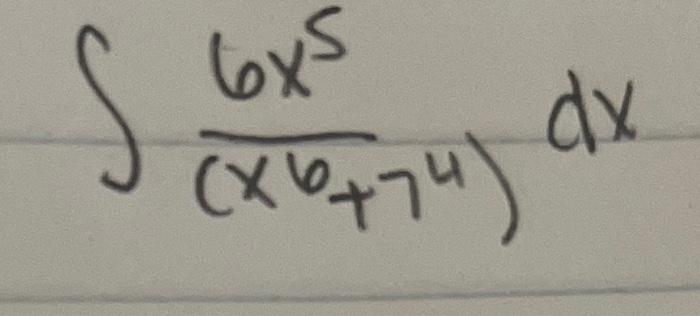 ∫ 6x⁵/(x⁶+7⁴) dx